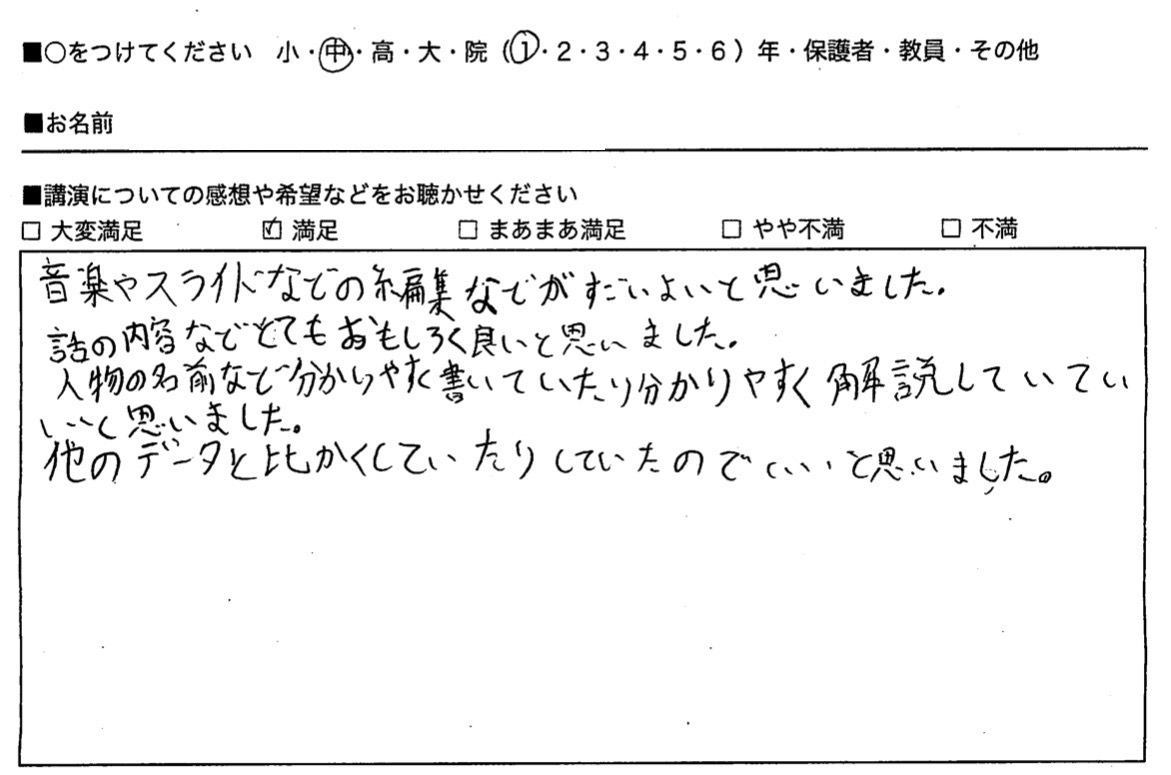 ■○をつけてください 小・中・高・大・院（1・2・3・4・5・6）年・保護者・教員・その他
■お名前
■講演についての感想や希望などをお聴かせください
□ 大変満足 ☑ 満足 □ まあまあ満足 □ やや不満 □ 不満
音楽やスライドなどの編集などがすごいよいと思いました。
話の内容などとてもおもしろく良いと思いました。
人物の名前など分かりやすく書いていたり分かりやすく解説していてい
いいと思いました。
他のデータと比かくしていたりしていたのでいいと思いました。